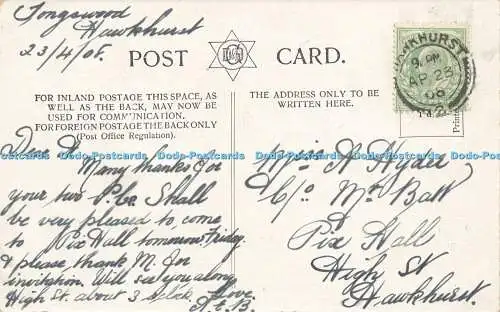 Tongswood
Hawkhurst
23/4/08.
POST CARD.
FOR INLAND POSTAGE THIS SPACE, AS
WELL AS THE BACK, MAY NOW BE
USED FOR COMMUNICATION.
FOR FOREIGN POSTAGE THE BACK ONLY
(Post Office Regulation).
THE ADDRESS ONLY TO BE
WRITTEN HERE.
HAWKHURST
9. PM
AP 23
08
Printe
Dear
Many thanks for
your two P.Cs. Shall
be very pleased to come
to Pix Hall tomorrow Friday
& please thank M. for
invitation. Will see you along
High St. about 3 o'clock. Love.
A.E.B.
Miss A Hyder
C/o Mr Batt
Pix Hall
High St
Hawkhurst.
Dodo-Postcards Dodo-Postcards Dodo-Postcards Dodo-Postcards